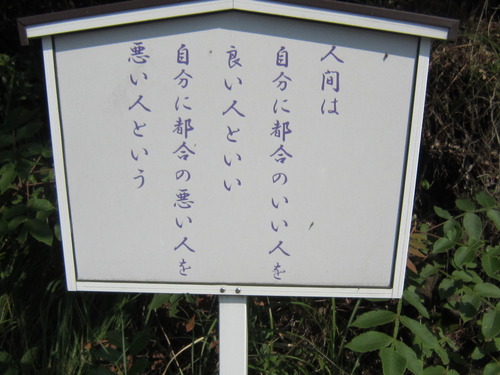 人間は
自分に都合のいい人を
良い人といい
自分に都合の悪い人を
悪い人という